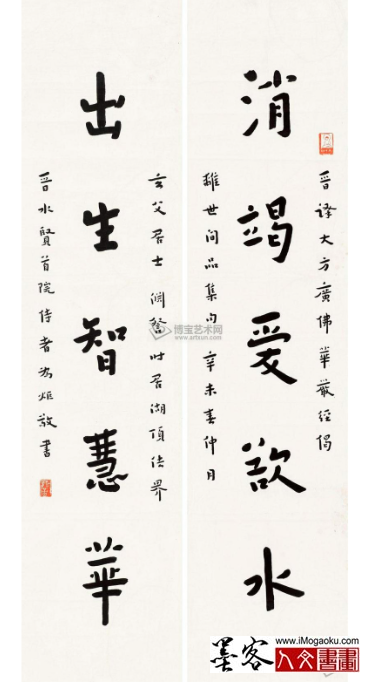 晉譯大方廣佛華嚴經偈
消竭愛欲水
離世間品集句 辛未春仲月
玄父居士 时居湖頂法界
出生智慧華
晉水賢首院侍者為炬敬書
博宝艺术网
www.artxun.com
墨客
www.iMogaoku.com
人文書畫